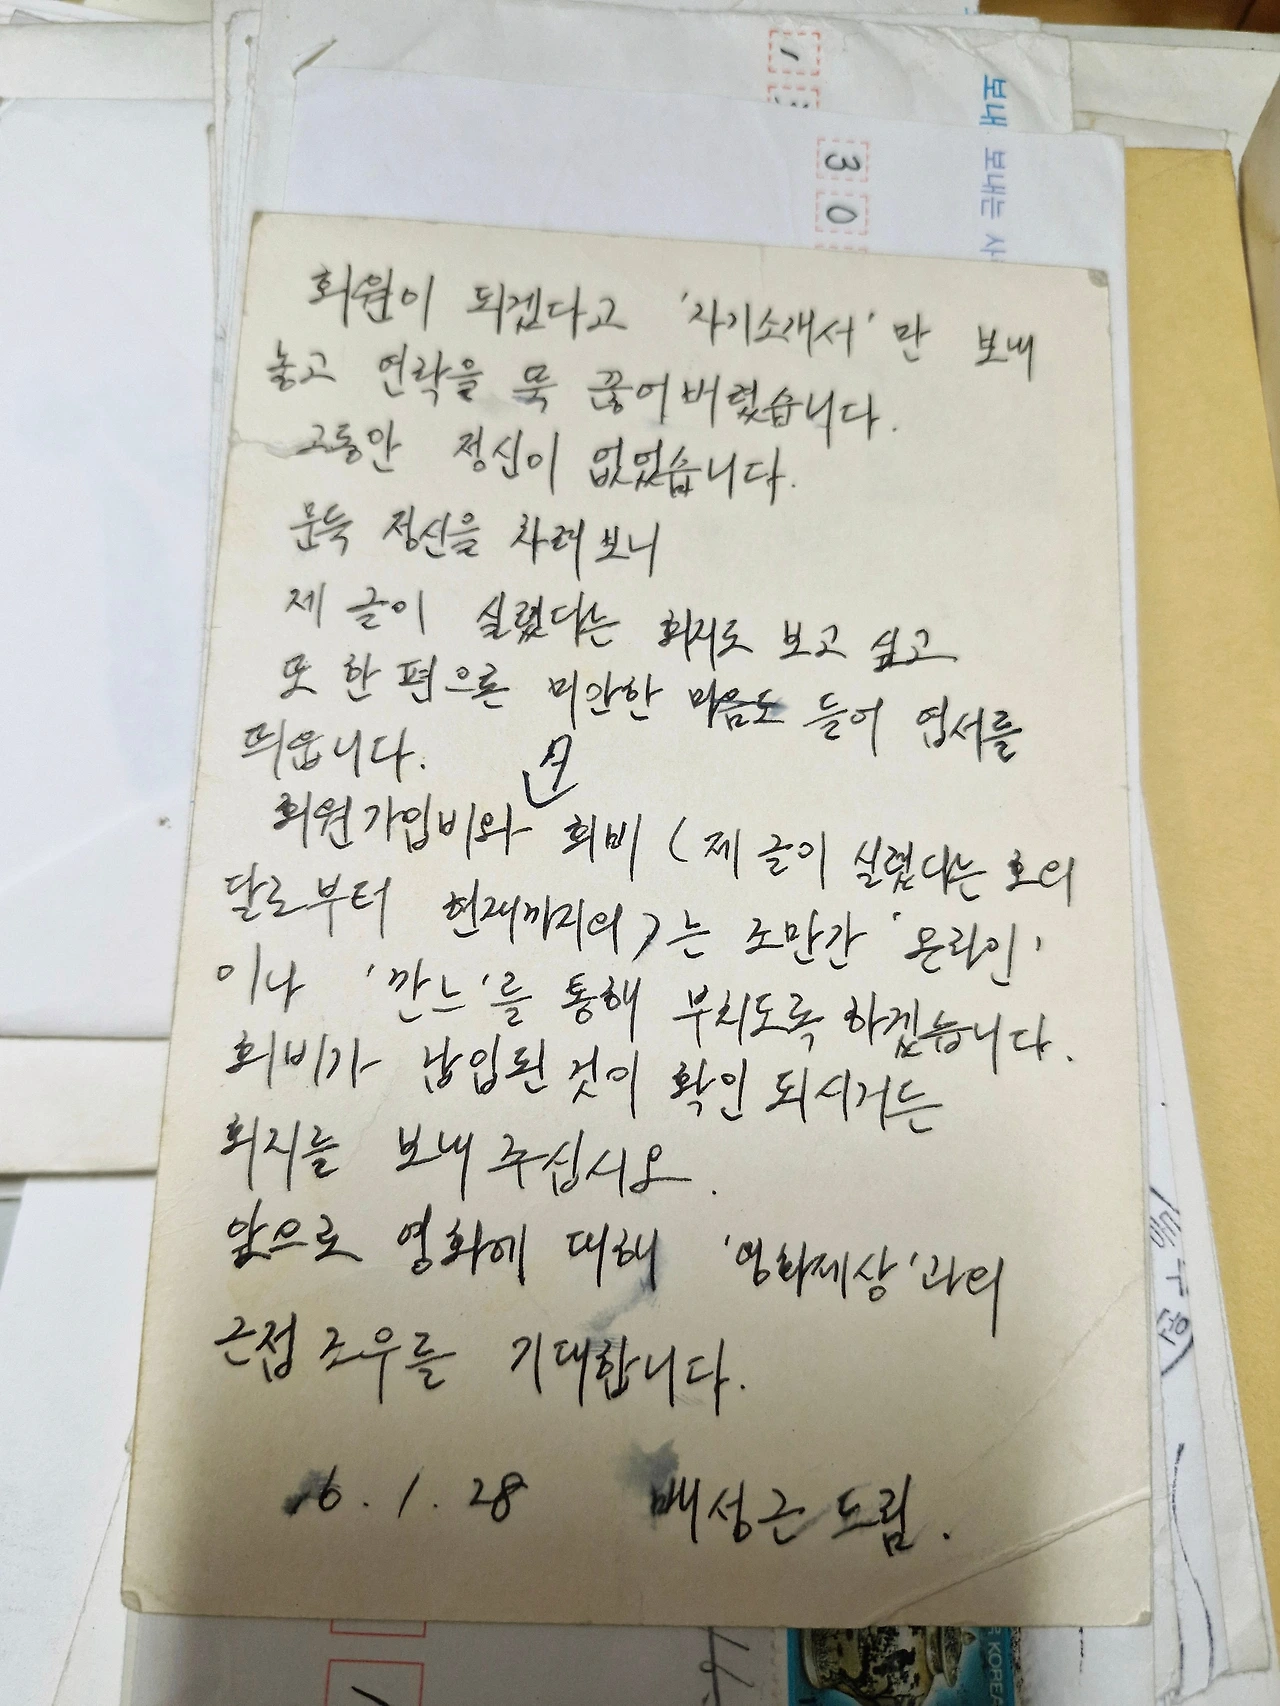 보내
보내는 사
3 0
회원이 되겠다고 '자기소개서'만 보내
놓고 연락을 뚝 끊어버렸습니다.
그동안 정신이 없었습니다.
문득 정신을 차려보니
제 글이 실렸다는 회지도 보고 싶고
또 한편으론 미안한 마음도 들어 엽서를
띄웁니다.
회원가입비와 회비 (제 글이 실렸다는 호의
달로부터 현재까지의)는 조만간 '온라인'
이나 '깐느'를 통해 부치도록 하겠습니다.
회비가 납입된 것이 확인 되시거든
회지를 보내 주십시오.
앞으로 영화에 대해 '영화세상'과의
근접 조우를 기대합니다.
6. 1. 28 배성근 드림.
KOREA